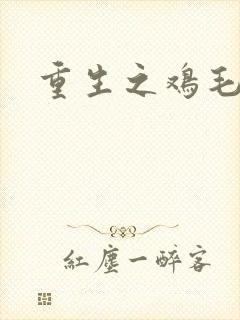 重生之鸡毛
紅塵一醉客